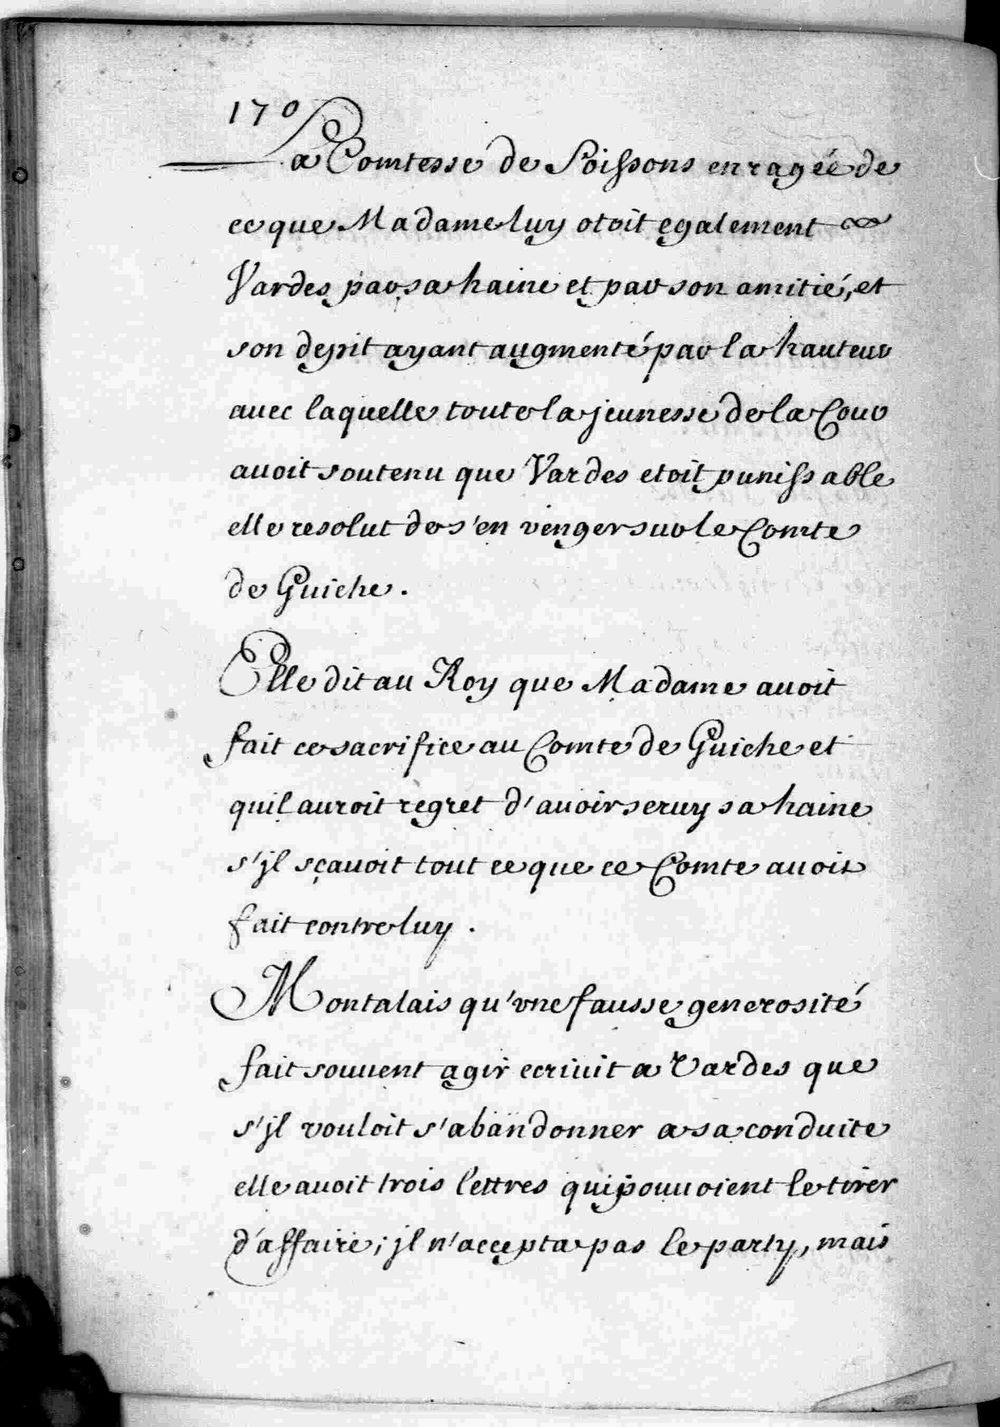 170
La Comtesse de Soissons enragée de
ce que Madame luy otoit egalement
Vardes par sa haine et par son amitié, et
son depit ayant augmenté par la hauteur
avec laquelle toute la jeunesse de la Cour
avoit soutenu que Vardes etoit punissable
elle resolut de s'en venger sur le Comte
de Guiche.
Elle dit au Roy que Madame avoit
fait ce sacrifice au Comte de Guiche et
quil auroit regret d'avoir seruy sa haine
s'jl sçavoit tout ce que ce Comte avoit
fait contre luy.
Montalais qu'vne fausse generosité
fait souuent agir ecriuit a Vardes que
s'jl vouloit s'abandonner a sa conduite
elle avoit trois lettres qui pouuoient le tirer
d'affaire; jl n'accepta pas le party, mais